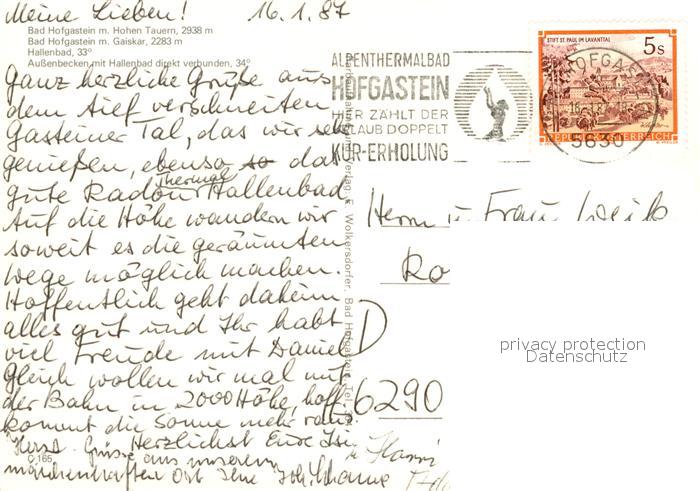 Meine Lieben! 16.1.87
Bad Hofgastein m. Hohen Tauern, 2938 m
Bad Hofgastein m. Gaiskar, 2283 m
Hallenbad, 33°
Außenbecken mit Hallenbad direkt verbunden, 34°
Ganz herzliche Grüße aus
dem tief verschneiten
Gasteiner Tal, das wir sehr
genießen, ebenso so das
gute Radon Thermal Hallenbad
Auf die Höhe wandern wir
soweit es die geräumten
Wege möglich machen.
Hoffentlich geht daheim
alles gut und Ihr habt
viel Freude mit Daniel
Gleich wollen wir mal mit
der Bahn in 2000 Höhe, hoff.
kommt die Sonne mehr raus
Herzlichst Eure
Herzl. Grüsse aus unserem
märchenhaften Ort Ihre
C 165
Wolkersdorfer, Bad Hofgastein, Tel.
ALPENTHERMALBAD
HOFGASTEIN
HIER ZÄHLT DER
URLAUB DOPPELT
KUR-ERHOLUNG
STIFT ST. PAUL IM LAVANTTAL
5s
REPUBLIK ÖSTERREICH
HOFGASTEIN
16.-1.87
5630
Herrn u Frau
Ro
D
6290
privacy protection
Datenschutz